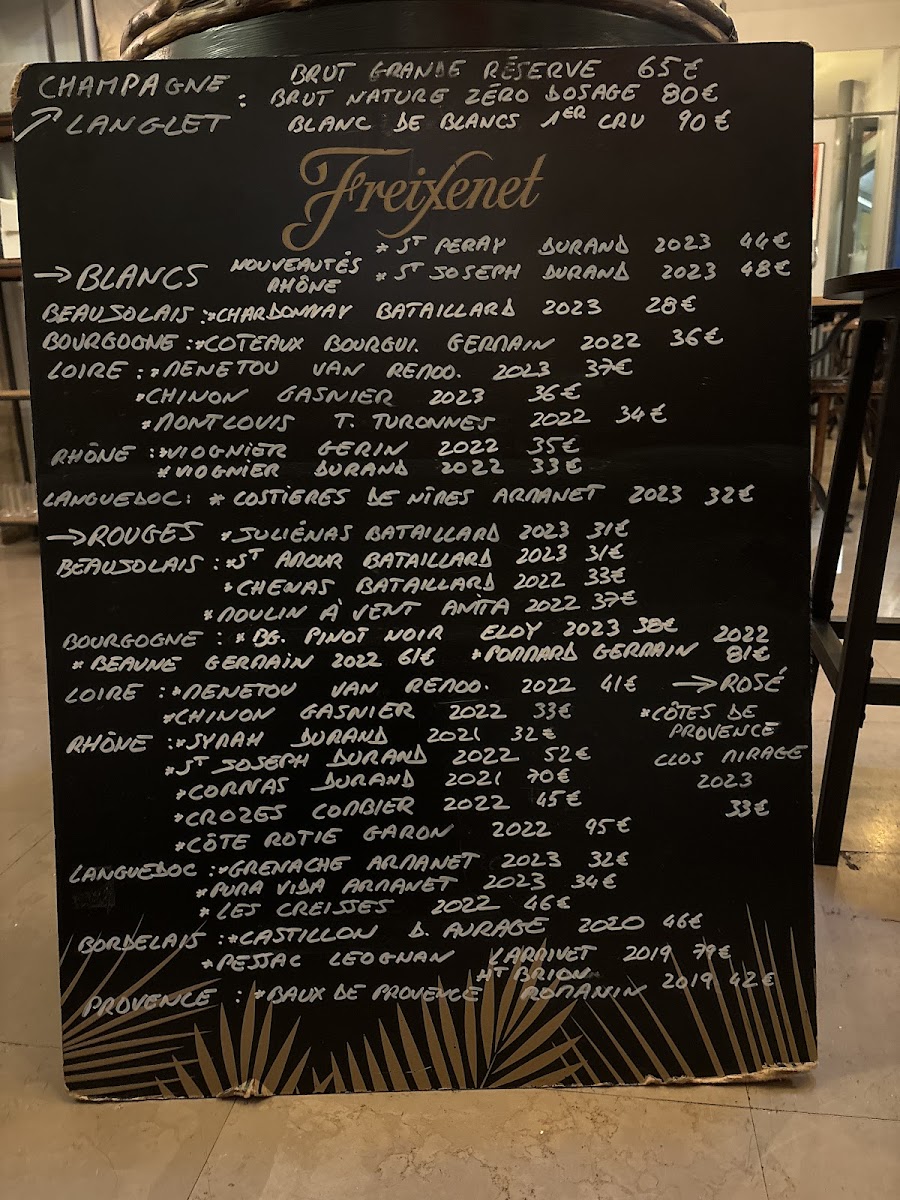 CHAMPAGNE : BRUT GRANDE RÉSERVE 65€
BRUT NATURE ZÉRO DOSAGE 80€
LANGLET BLANC DE BLANCS 1ER CRU 90€
Freixenet
* ST PERAY DURAND 2023 44€
→ BLANCS NOUVEAUTÉS RHÔNE * ST JOSEPH DURAND 2023 48€
BEAUJOLAIS : * CHARDONNAY BATAILLARD 2023 28€
BOURGOGNE : * COTEAUX BOURGUI. GERMAIN 2022 36€
LOIRE : * MENETOU VAN REMOO. 2023 37€
* CHINON GASNIER 2023 36€
* MONTLOUIS T. TURONNES 2022 34€
RHÔNE : * VIOGNIER GERIN 2022 35€
* VIOGNIER DURAND 2022 33€
LANGUEDOC : * COSTIERES DE NÎMES ARMANET 2023 32€
→ ROUGES * JULIÉNAS BATAILLARD 2023 31€
BEAUJOLAIS : * ST AMOUR BATAILLARD 2023 31€
* CHENAS BATAILLARD 2022 33€
* MOULIN À VENT AMITA 2022 37€
BOURGOGNE : * BG. PINOT NOIR ELOY 2023 38€
* BEAUNE GERMAIN 2022 61€ * POMMARD GERMAIN 2022 81€
LOIRE : * MENETOU VAN REMOO. 2022 41€
* CHINON GASNIER 2022 33€
RHÔNE : * SYRAH DURAND 2021 32€
* ST JOSEPH DURAND 2022 52€
* CORNAS DURAND 2021 70€
* CROZES COMBIER 2022 45€
* CÔTE ROTIE GARON 2022 95€
→ ROSÉ
* CÔTES DE
PROVENCE
CLOS MIRAGE
2023
33€
LANGUEDOC : * GRENACHE ARMANET 2023 32€
* PURA VIDA ARMANET 2023 34€
* LES CREISSES 2022 46€
BORDELAIS : * CASTILLON D. AURAGE 2020 46€
* PESSAC LEOGNAN LARRIVET HT BRION 2019 79€
PROVENCE : * BAUX DE PROVENCE ROMANIN 2019 42€